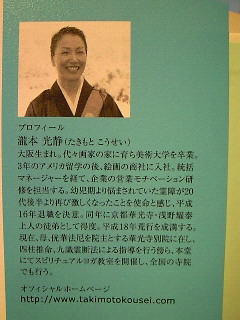 プロフィール
瀧本 光静(たきもと こうせい)
大阪生まれ。代々画家の家に育ち美術大学を卒業。
3年のアメリカ留学の後、絵画の商社に入社。統括
マネージャーを経て、企業の営業モチベーション研
修を担当する。幼児期より悩まされていた霊障が20
代後半より再び激しくなったことを使命と感じ、平成
16年退職を決意。同年に京都華光寺・浅野耀泰
上人の徒弟として得度。平成18年荒行を成満する。
現在、母、優華法尼を院主とする華光寺別院に在し、
四柱推命、九識霊断法による指導を行う傍ら、本堂
にてスピリチュアルヨガ教室を開催し、全国の寺院
でも行う。
オフィシャルホームページ
http://www.takimotokousei.com